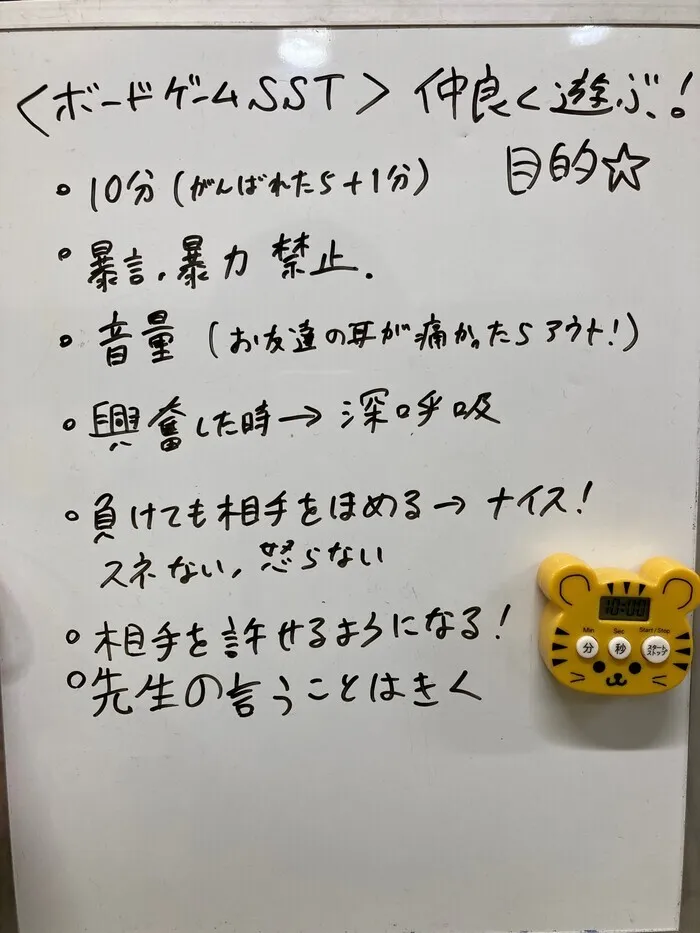 <ボードゲームSST> 仲良く遊ぶ!
目的☆
○ 10分(がんばれたら+1分)
○ 暴言、暴力 禁止.
○ 音量 (お友達の耳が痛かったらアウト!)
○ 興奮した時→深呼吸
○ 負けても相手をほめる→ナイス!
スネない、怒らない
○ 相手を許せるようになる!
○ 先生の言うことはきく
10:00
Min Sec Start/Stop
分 秒 スタート ストップ